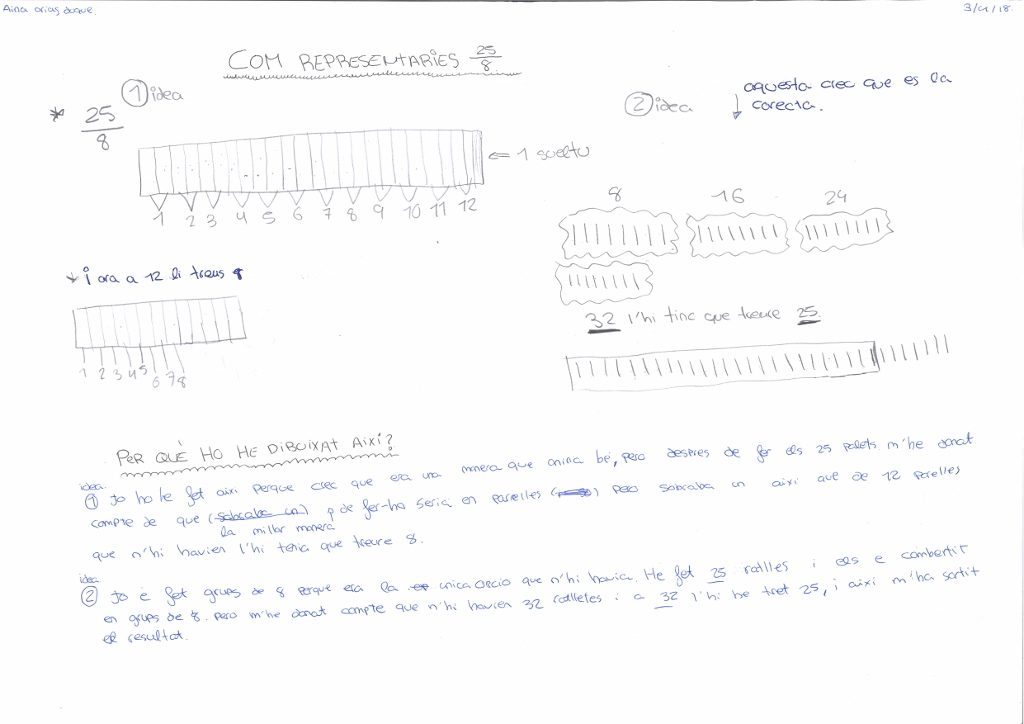 Aina arias duque.
3/4/18.
COM REPRESENTARIES 25/8
① idea
* 25/8
⇐ 1 sueltu
1 2 3 4 5 6 7 8 9 10 11 12
* i ora a 12 li treus 8
1 2 3 4 5 6 7 8
② idea
aquesta crec que es la
corecta.
8 16 24
32 l'hi tinc que treure 25.
PER QUÈ HO HE DIBUIXAT AIXÍ?
idea.
① Jo ho he fet aixi perque crec que era una manera que aniria bé, pero despres de fer els 25 palets m'he donat
compte de que (sobraba un) p de fer-ho seria en parelles pero sobraba un aixi que de 12 parelles
la millor manera
que n'hi havien l'hi tenia que treure 8.
idea
② Jo e fet grups de 8 perque era la unica opcio que n'hi havia. He fet 25 ratlles i els e combertir
en grups de 8. pero m'he donat compte que n'hi havien 32 ratlletes i a 32 l'hi he tret 25, i aixi m'ha sortit
el resultat.